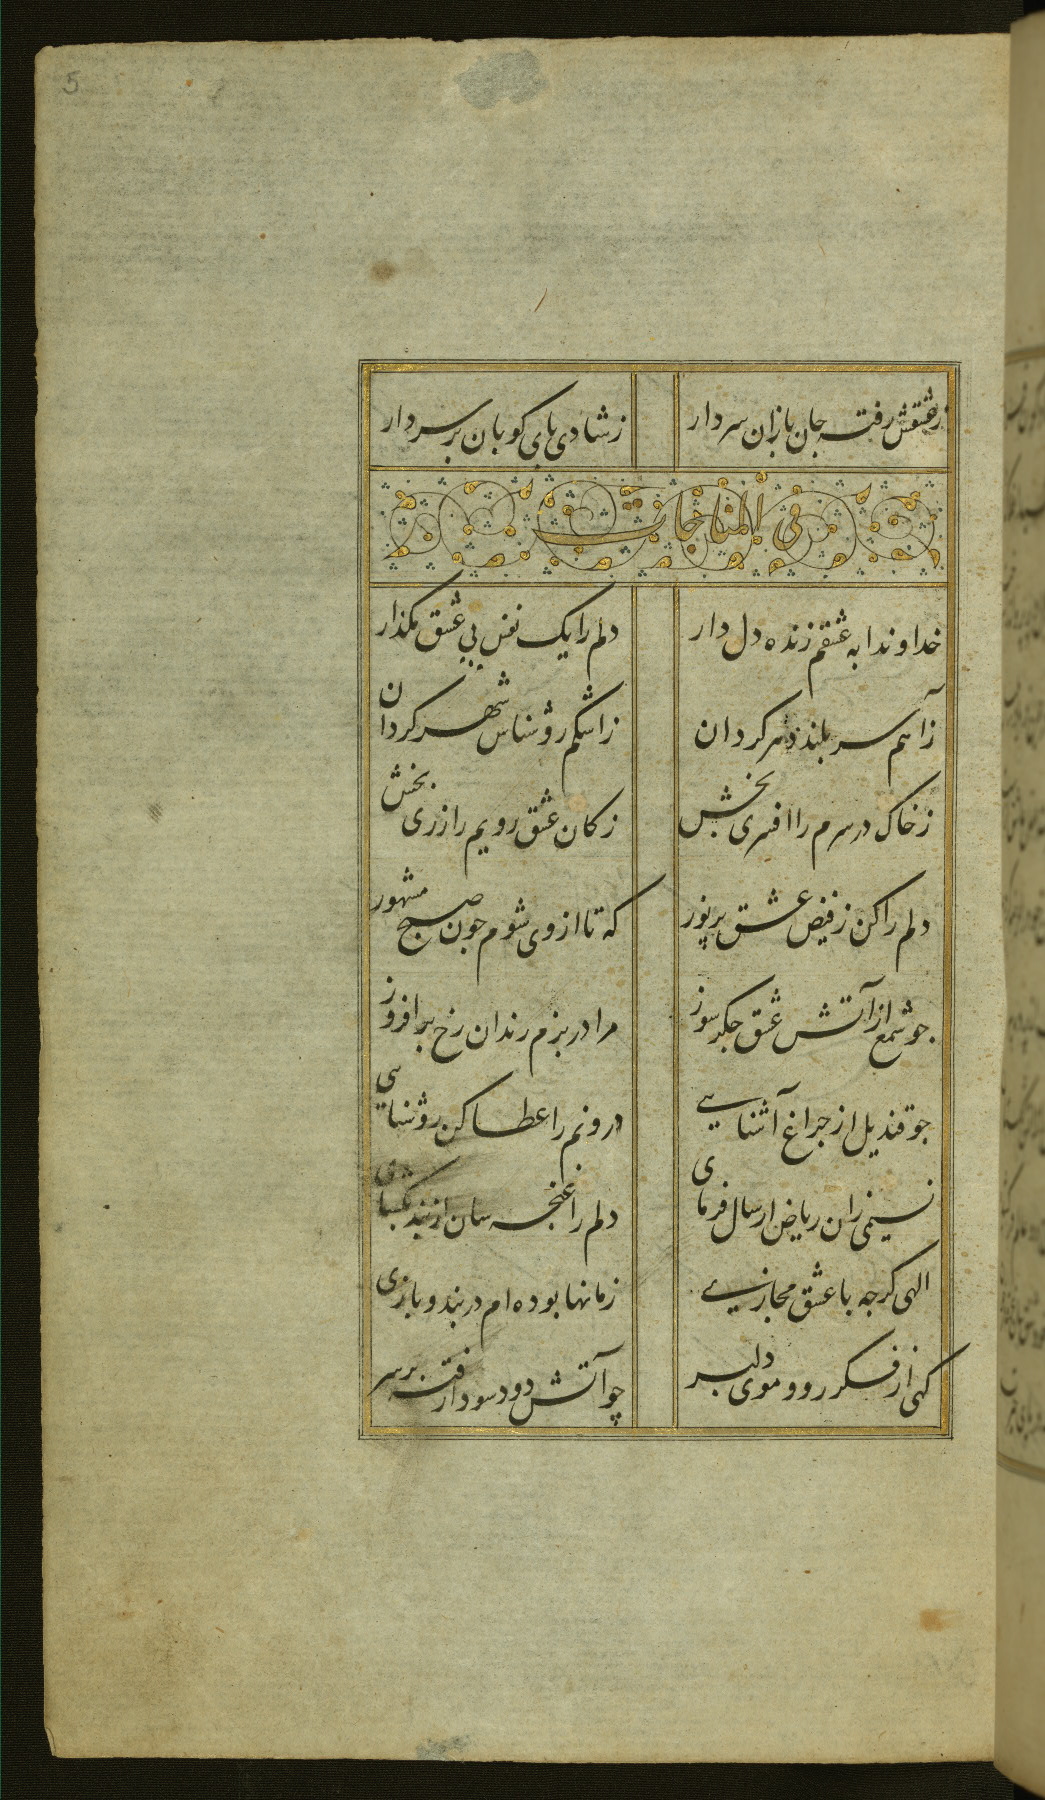 5
زعشقش رفته جان بازان سردار زشادی پای کوبان بر سردار
فی المناجات
خداوندا به عشقم زنده دل دار دلم را یک نفس بی عشق مکذار
زآهم سر بلند دهر کردان زاشکم روشناس شهر کردان
زخاک در سرم را افسری بخش زکان عشق رویم را زری بخش
دلم را کن زفیض عشق پرنور که تا از وی شوم جون صبح مشهور
جو شمع از آتش عشق جکر سوز مرا در بزم رندان رخ برافروز
جو قندیل از جراغ آشنایی درونم را عطا کن روشنایی
نسیمی زان ریاض ارسال فرمای دلم را غنجه سان از بند بکشای
الهی کرجه با عشق مجازی زمانها بوده ام در بند و بازی
کهی از فکر رو و موی دلبر چو آتش دود سودا رفته بر سر